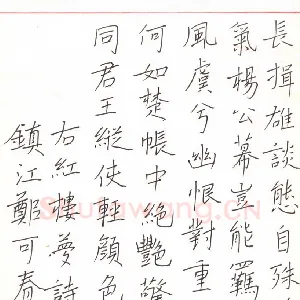 長揖雄談態自殊
氣楊公幕豈能羈
風虞兮幽恨對重
何如楚帳中絕艷驚
同君王縱使輕顏色
右紅樓夢詩
鎮江鄭可春